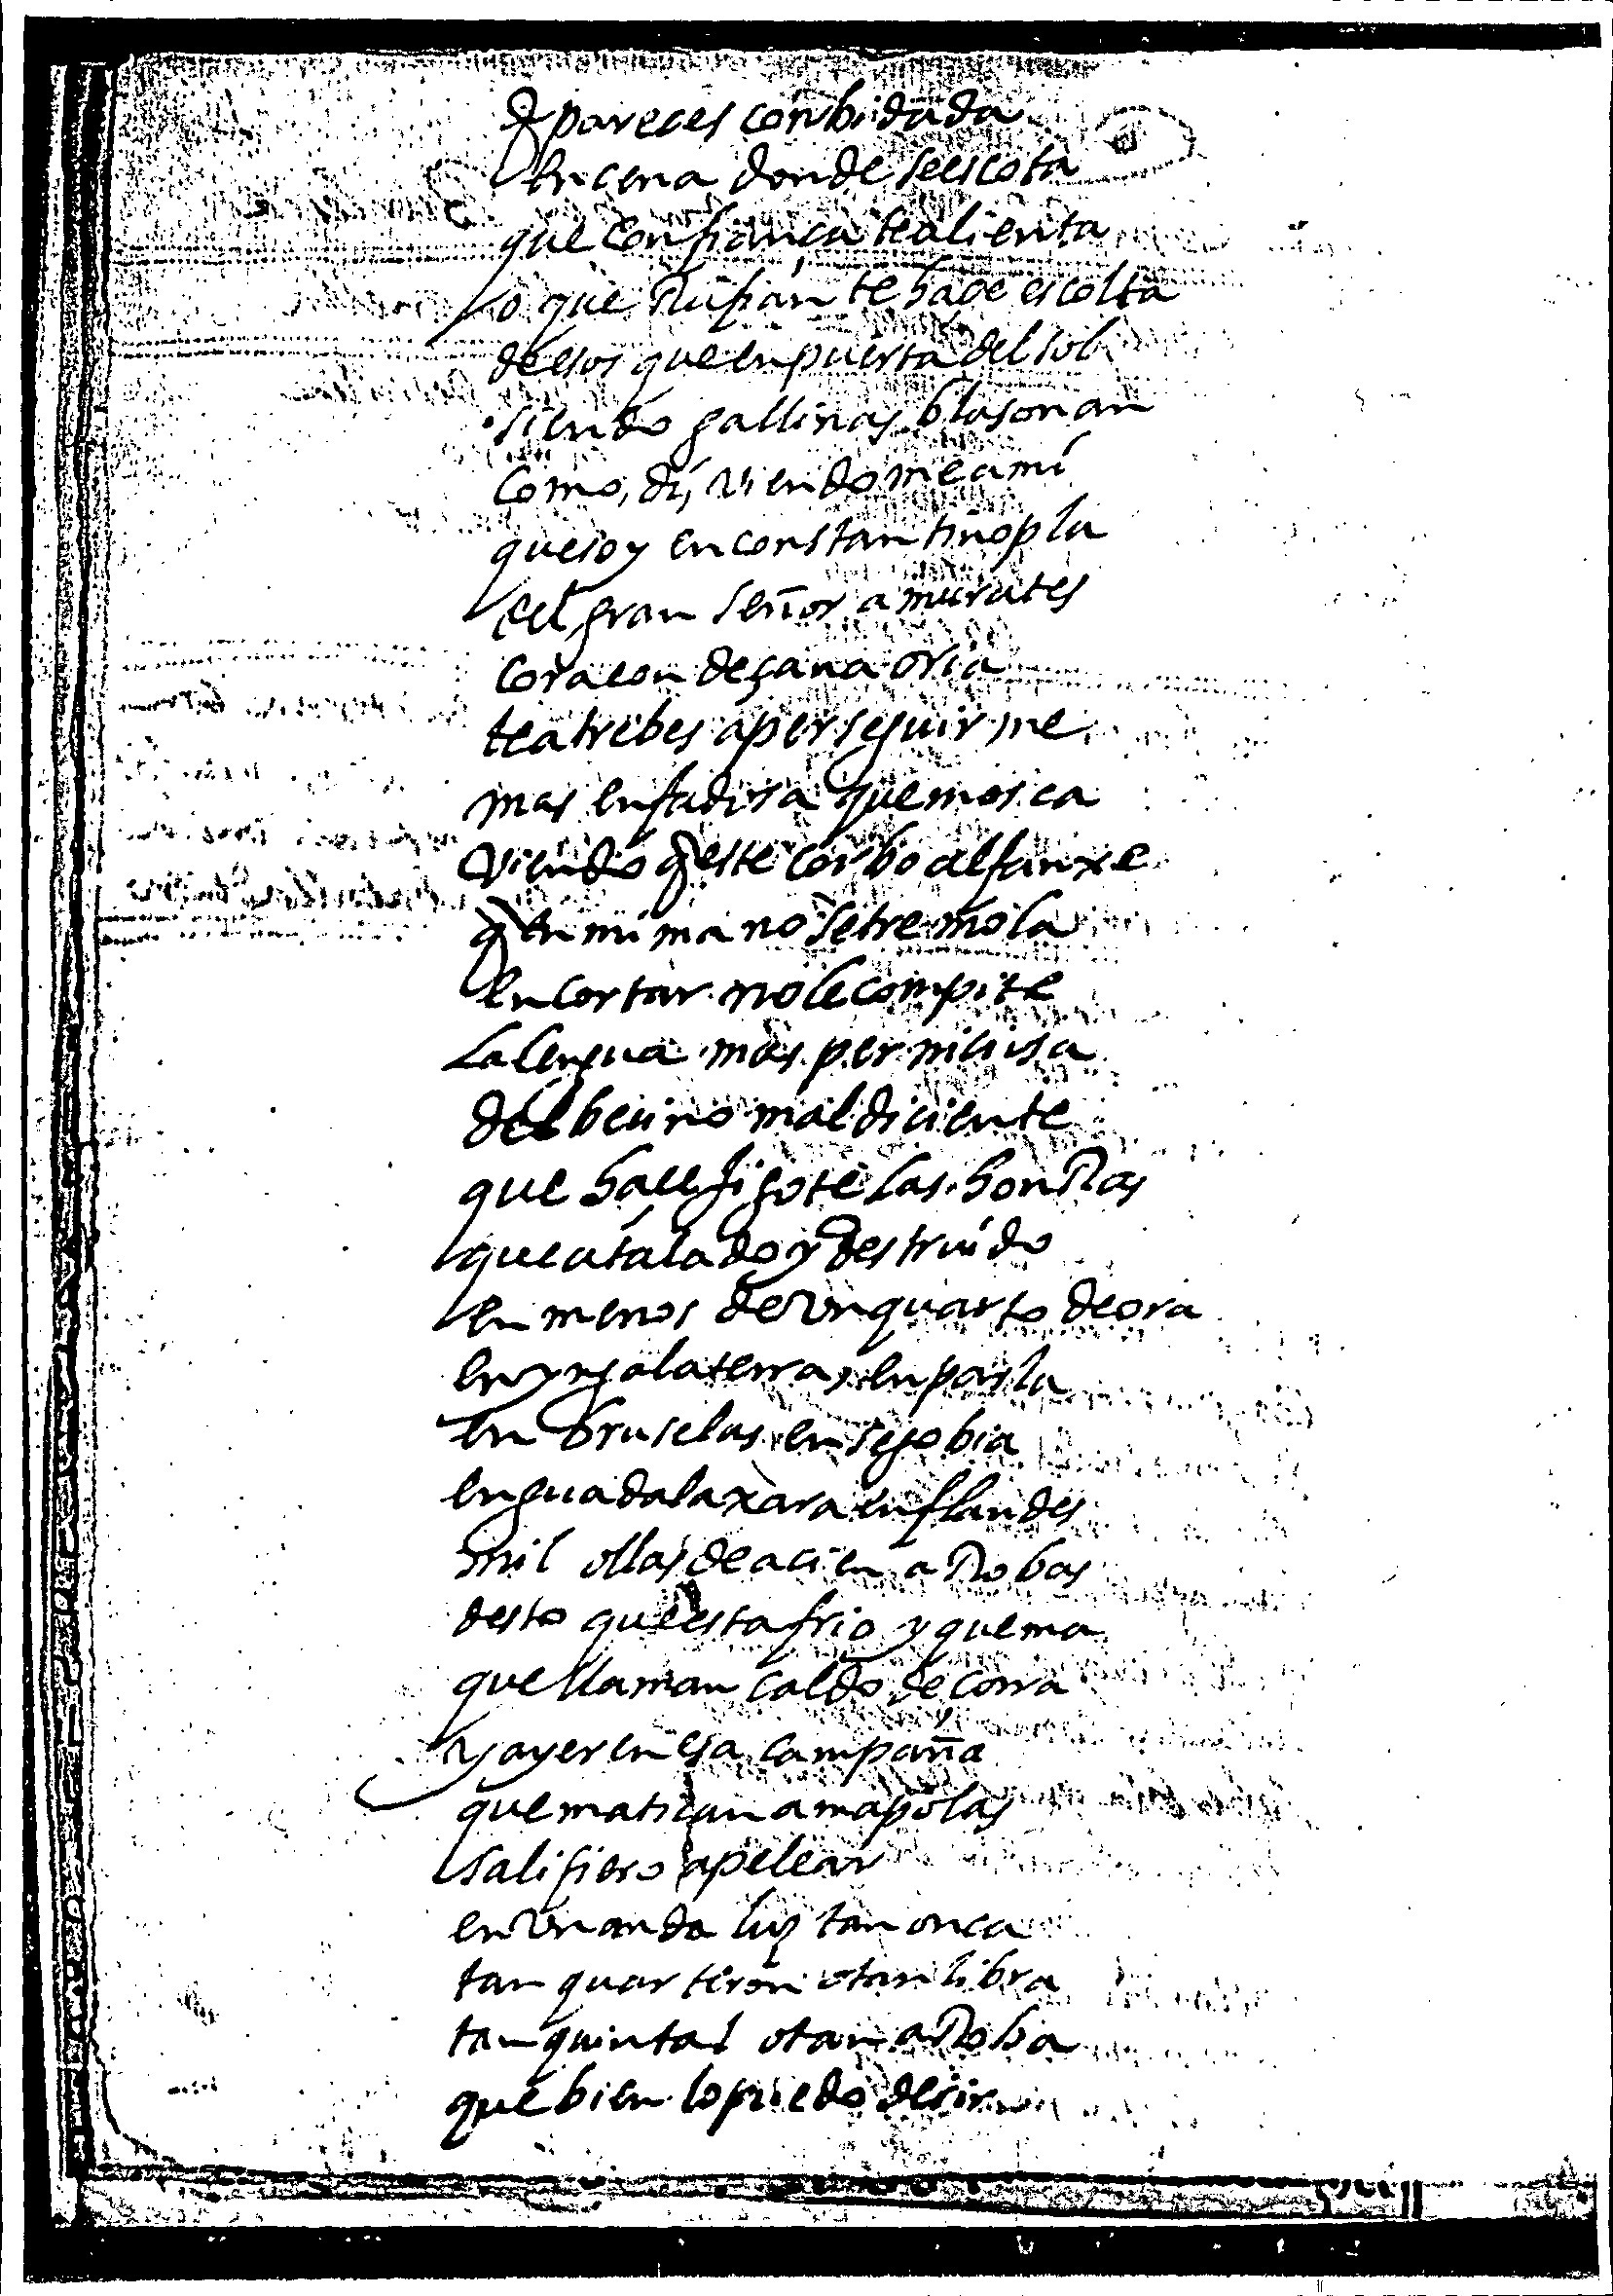 q pareces conbidada
en cena donde se escota
que confiança te alienta
o que Rufian te haçe escolta
de esos que en puerta del sol
siendo gallinas blasonan
como, di, viendome a mi
que soy en constantinopla
del gran señor amurates
coraçon de çanaoria
te atrebes a perseguirme
mas enfadosa que mosca
viendo q este corbo alfanxe
q en mi mano se tremola
en cortar no le compite
la lengua mas perniciosa
del beçino maldiciente
que haçe jigote las honRas
que a talado y destruido
en menos de vn quarto de ora
en yngalaterra, en parla
en bruselas en segobia
en guadalaxara en flandes
mil ollas de a cien aRobas
desto que esta frio y quema
que llaman caldo de corra
y ayer en esa campaña
que matiçan amapolas
sali fiero a pelear
en vna anda luz tan onça
tan quarteron o tan libra
tan quintal o tan aRoba
que bien lo puedo deçir